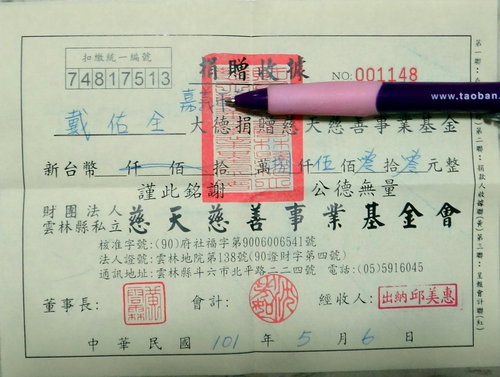 扣繳統一編號
74817513
捐贈收據
NO:001148
www.taoban
嘉義市
戴佑全 大德捐贈慈天慈善事業基金
新台幣 仟 佰 拾 萬捌仟伍佰叁拾叁元整
謹此銘謝 公德無量
財團法人
雲林縣私立
慈天慈善事業基金會
核准字號:(90)府社福字第9006006541號
法人證號:雲林地院第138號(90證財字第四號)
通訊地址:雲林縣斗六市北平路二二四號 電話:(05)5916045
董事長: 會計: 經收人: 出納邱美惠
中華民國 101 年 5 月 6 日
第二聯:捐款人收據聯(黃)第三聯:呈報會計聯(紅)